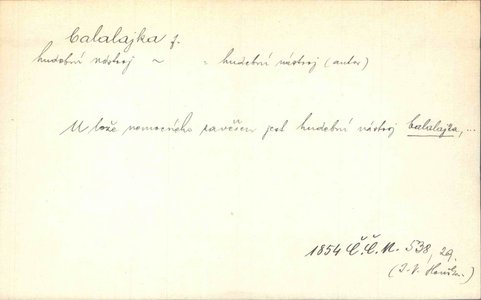 balalajka f.
hudební nástroj ~ = hudební nástroj (autor)
U lože nemocného zavěšen jest hudební nástroj balalajka, ...
1854 Č.Č.M. 538, 29.
(J. V.